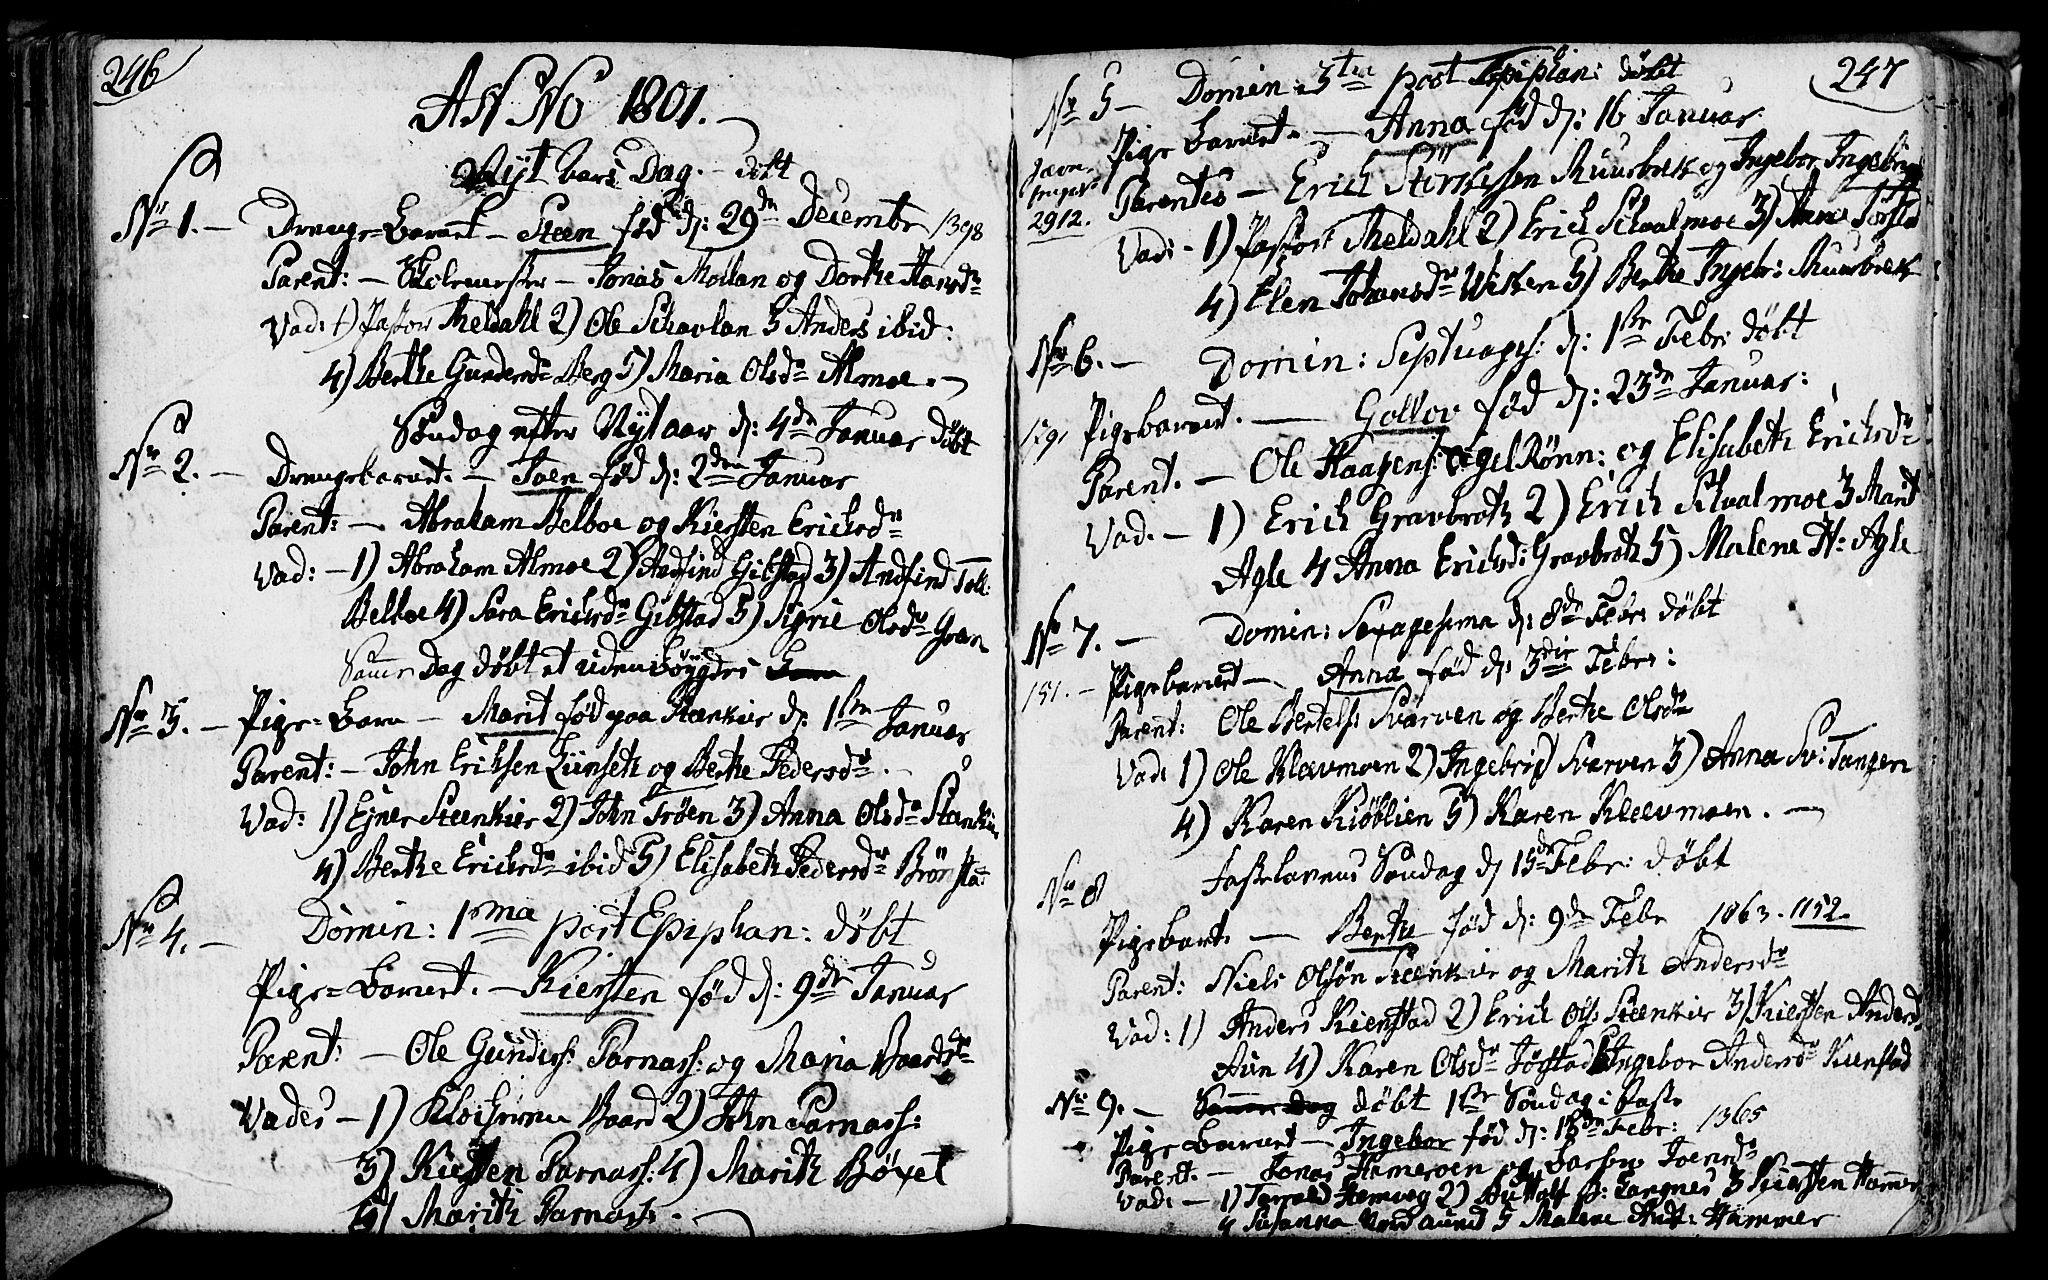 246
ANNO 1801.
Nyt Aars Dag. - døbt
No 1. - Drenge=Barnet - Steen fød d: 29de Decembr 1398
Parent: - Skolemester - Jonas Mollan og Dorthe Hansdr
Vad: 1) Pastor Meldahl 2) Ole Schavlan 3 Anders ibid:
4) Berthe Gundersdr Berg 5) Maria Olsdr Almoe. -
Søndag efter Nytaar d: 4de Januar døbt
No 2. - Drengebarnet. - Joen fød d: 2den Januar
Parent: - Abraham Belboe og Kiersten Erichsdr
Vad: - 1) Abraham Almoe 2) Andfind Gibstad 3) Andfind Toll:
Belboe 4) Sara Erichsdr Gibstad 5) Sigrie Olsdr Gran
Samme Dag døbt et udenbøygds
No 3. - Pige=Barn - Marit fød paa Steenkier d: 1ste Januar
Parent: - John Eriksen Lünseth og Berthe Pedersdr. -
Vad: 1) Ejner Steenkier 2) John Trøen 3) Anna Olsdr Steenkier
4) Berthe Erichsdr ibid 5) Elisabeth Pedersdr Brønsta:
No 4. - Domin: 1ma post Epiphan: døbt
Pige=Barnet. - Kiersten fød d: 9de Januar
Parent: - Ole Gunders: Parnass: og Maria Baardsdr
Vades - 1) Klocheren Baard 2) John Parnass:
3) Kiersten Parnass: 4) Marith Bøxet
5) Marith Parnass. -
247
No 5 - Domin: 3tia post Epiphan: døbt
Pige Barnet. - Anna fød d: 16 Januar
2912.
Parentes - Erich Störkersen Muurbrek og Ingebor Ingebrigtsdr
Vad: - 1) Pastor Meldahl 2) Erich Schvalmoe 3) Anne Forstad
4) Elen Johansdr Wiken 5) Berthe Ingebr: Muurbrek
No 6. - Domin: Septuages: d: 1ste Febr: døbt
Pigebarnet. - Gollov fød d: 23de Januar:
Parent. - Ole Haagens: Agel Rönn: og Elisabeth Erichsdr
Vad. - 1) Erich Gravbroth 2) Erich Schvalmoe 3 Marit
Agle 4 Anna Erichsd: Gravbroth 5) Malene H: Agle
No 7. - Domin: Sexagesima d: 8de Febr: døbt
151. - Pigebarnet - Anna fød d: 3die Febr:
Parent: Ole Bertels: Svarven og Berthe Olsdr
Vad: 1) Ole Klævmoen 2) Ingebrigt Svarven 3) Anna Sv: Tangen
4) Karen Kiöblien 5) Karen Kleevmoen. -
No 8 Fastelavens Søndag d 15de Febr: døbt
Pigebarn. - Berthe fød d: 9de Febr 1063. 1152.
Parent: Niels Olsøn Steenkier og Marith Andersdr
Vad: 1) Anders Kienstad 2) Erich Ols Steenkier 3) Kiersten Andersd
Aün 4) Karen Olsdr Jørstad 5 Ingebor Andersdr Kienstad
No 9. - Samme Dag døbt 1ste Søndag i Faste
Pige Barnet - Ingebor fød d: 18de Febr: 1365
Parent. - Jonas Hameroen og Joensdr
Vad: - 1) Hemvog 2) 3 Kiersten Hammer
4 Susanna 5 Malene And: Hammer